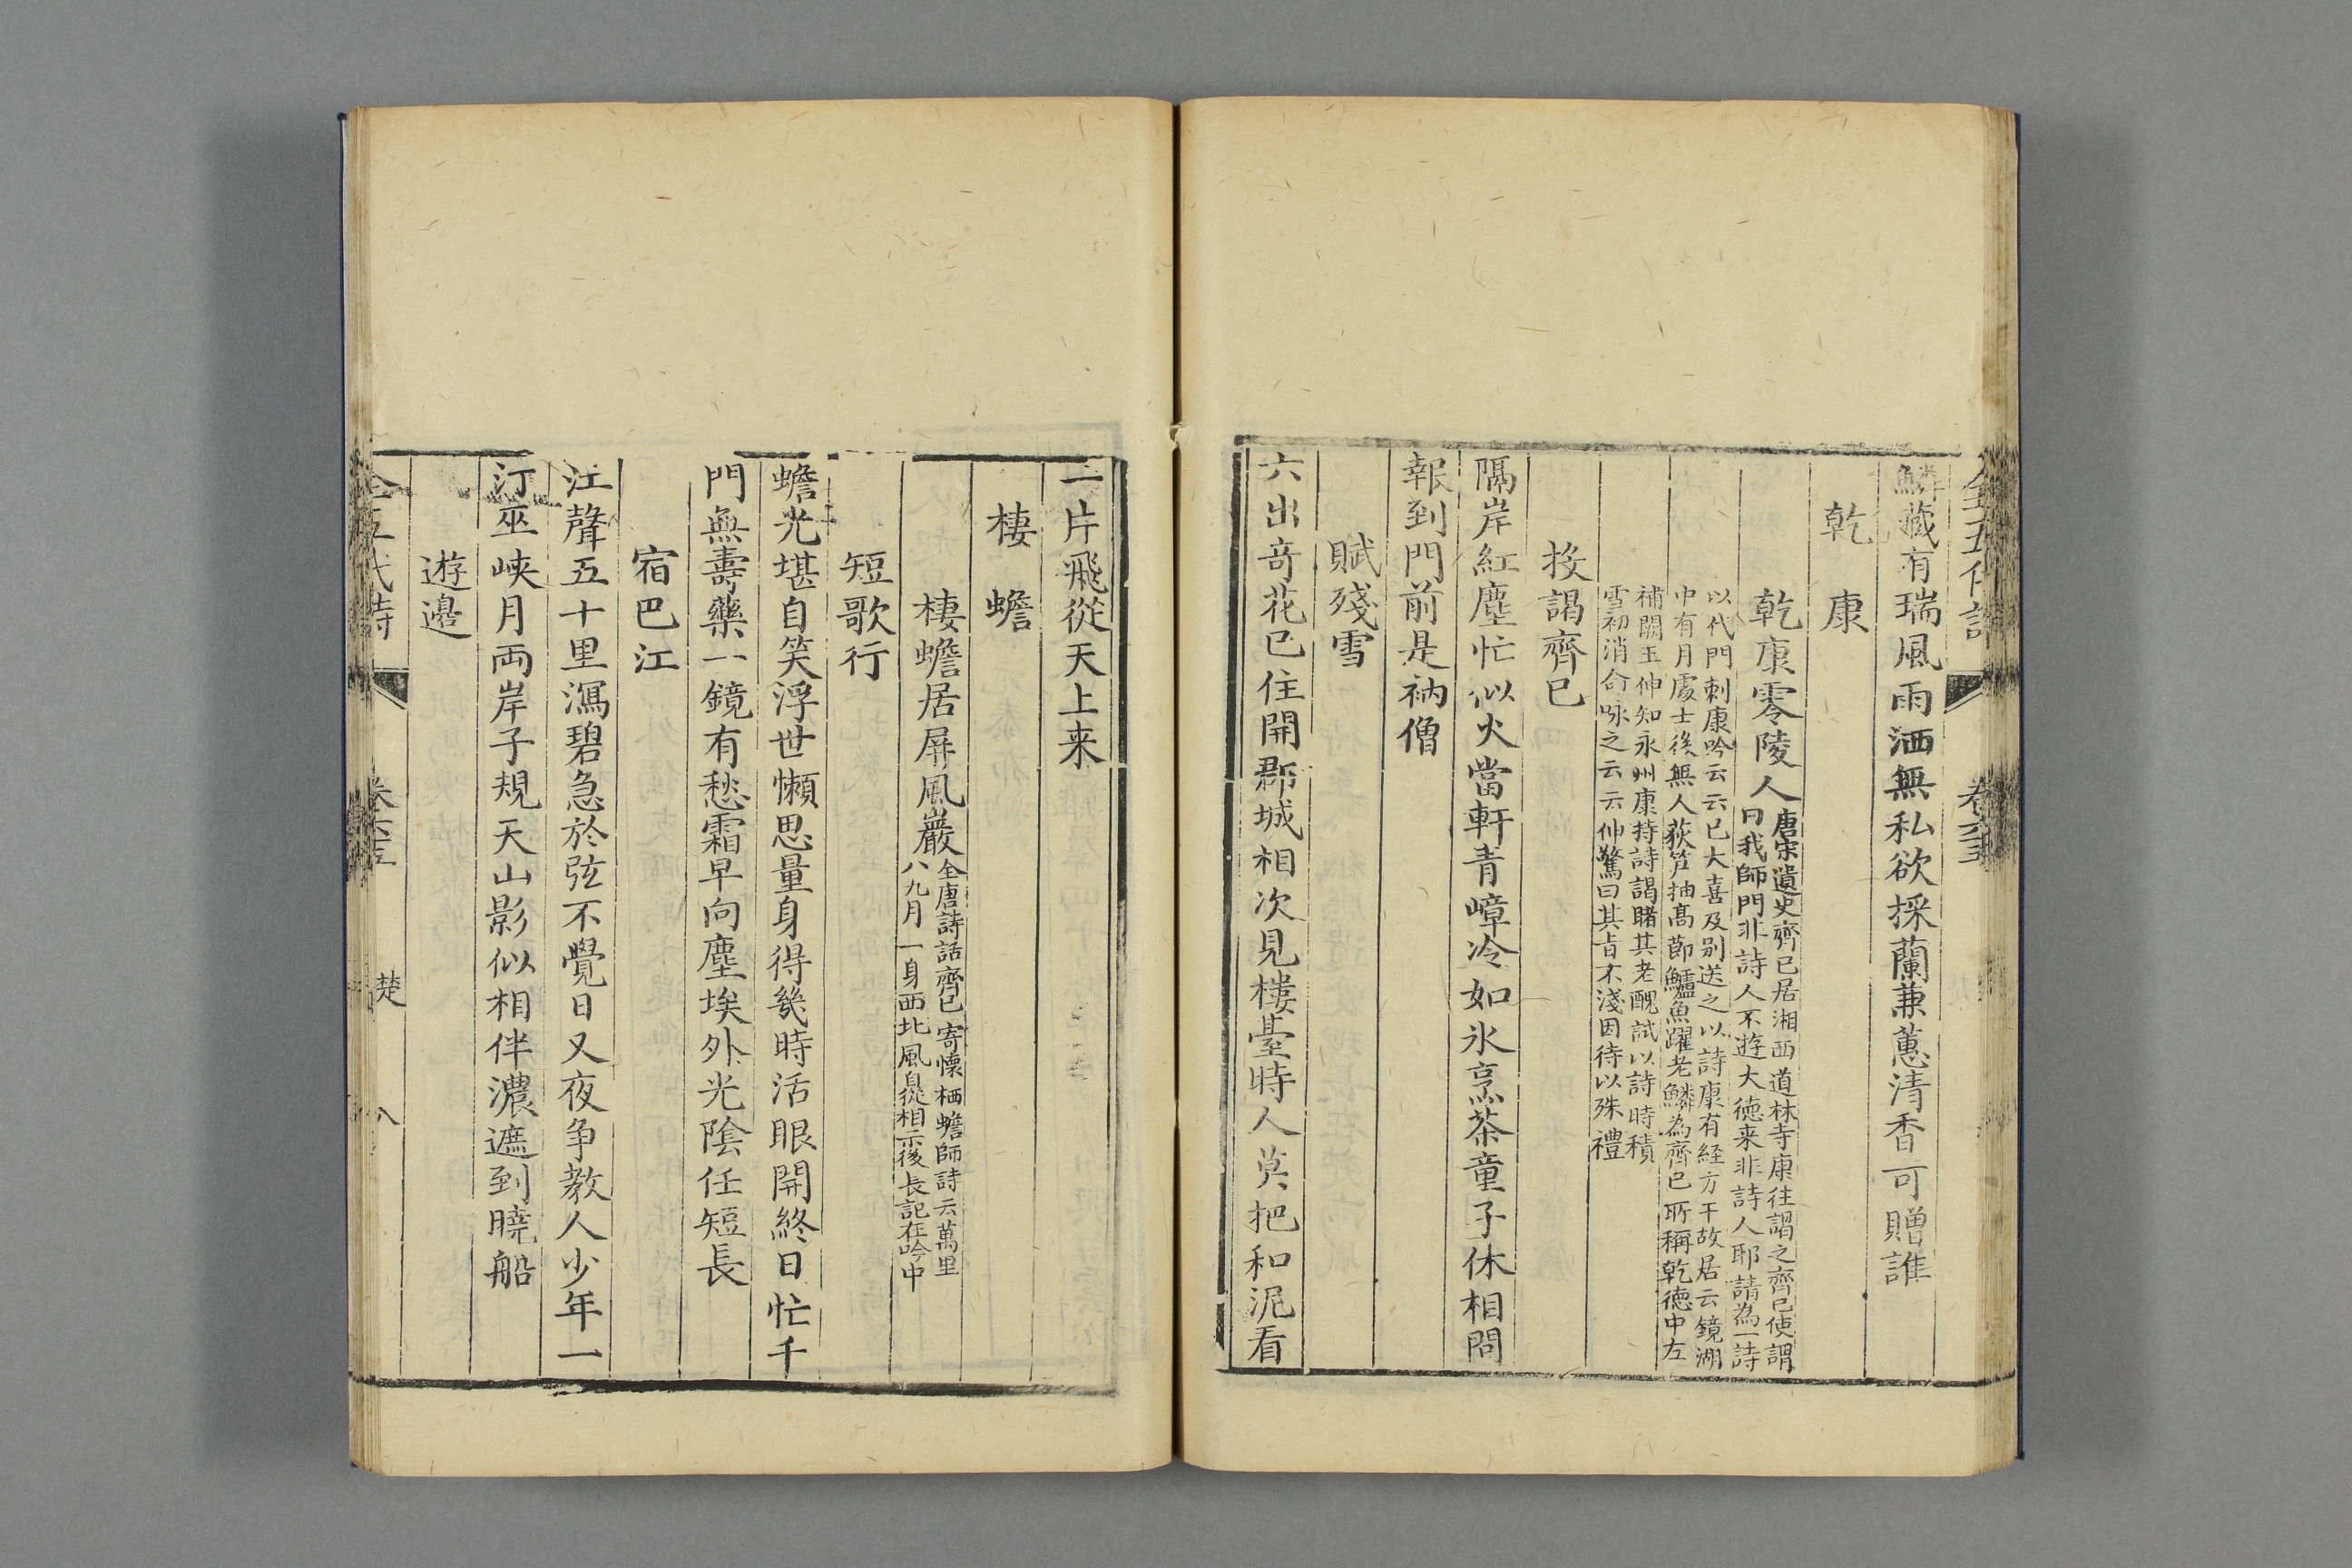 鱗藏有瑞風雨洒無私欲採蘭兼蕙清香可贈誰
乾　康
乾康零陵人
唐宋遺史齊已居湘西道林寺康往謁之齊已使謂
曰我師門非詩人不遊大德来非詩人耶請為一詩
以代門刺康吟云云已大喜及别送之以詩康有經方干故居云鏡湖
中有月處士後無人荻笋抽高節鱸魚躍老鱗為齊已所稱乾德中左
補闕王伸知永州康持詩謁睹其老醜試以詩時積
雪初消命咏之云云伸驚曰其旨不淺因待以殊禮
投謁齊已
隔岸紅塵忙似火當軒青嶂冷如氷烹茶童子休相問
報到門前是衲僧
賦殘雪
六出竒花已住開郡城相次見樓臺時人莫把和泥看
一片飛從天上来
棲　蟾
棲蟾居屏風巖
全唐詩話齊已寄懷栖蟾師詩云萬里
八九月一身西北風自從相示後長記在吟中
短歌行
蟾光堪自笑浮世懶思量身得幾時活眼開終日忙千
門無壽藥一鏡有愁霜早向塵埃外光陰任短長
宿巴江
江聲五十里瀉碧急於弦不覺日又夜争教人少年一
汀巫峽月两岸子規天山影似相伴濃遮到曉船
遊邊
全五代詩　卷六五　楚　八